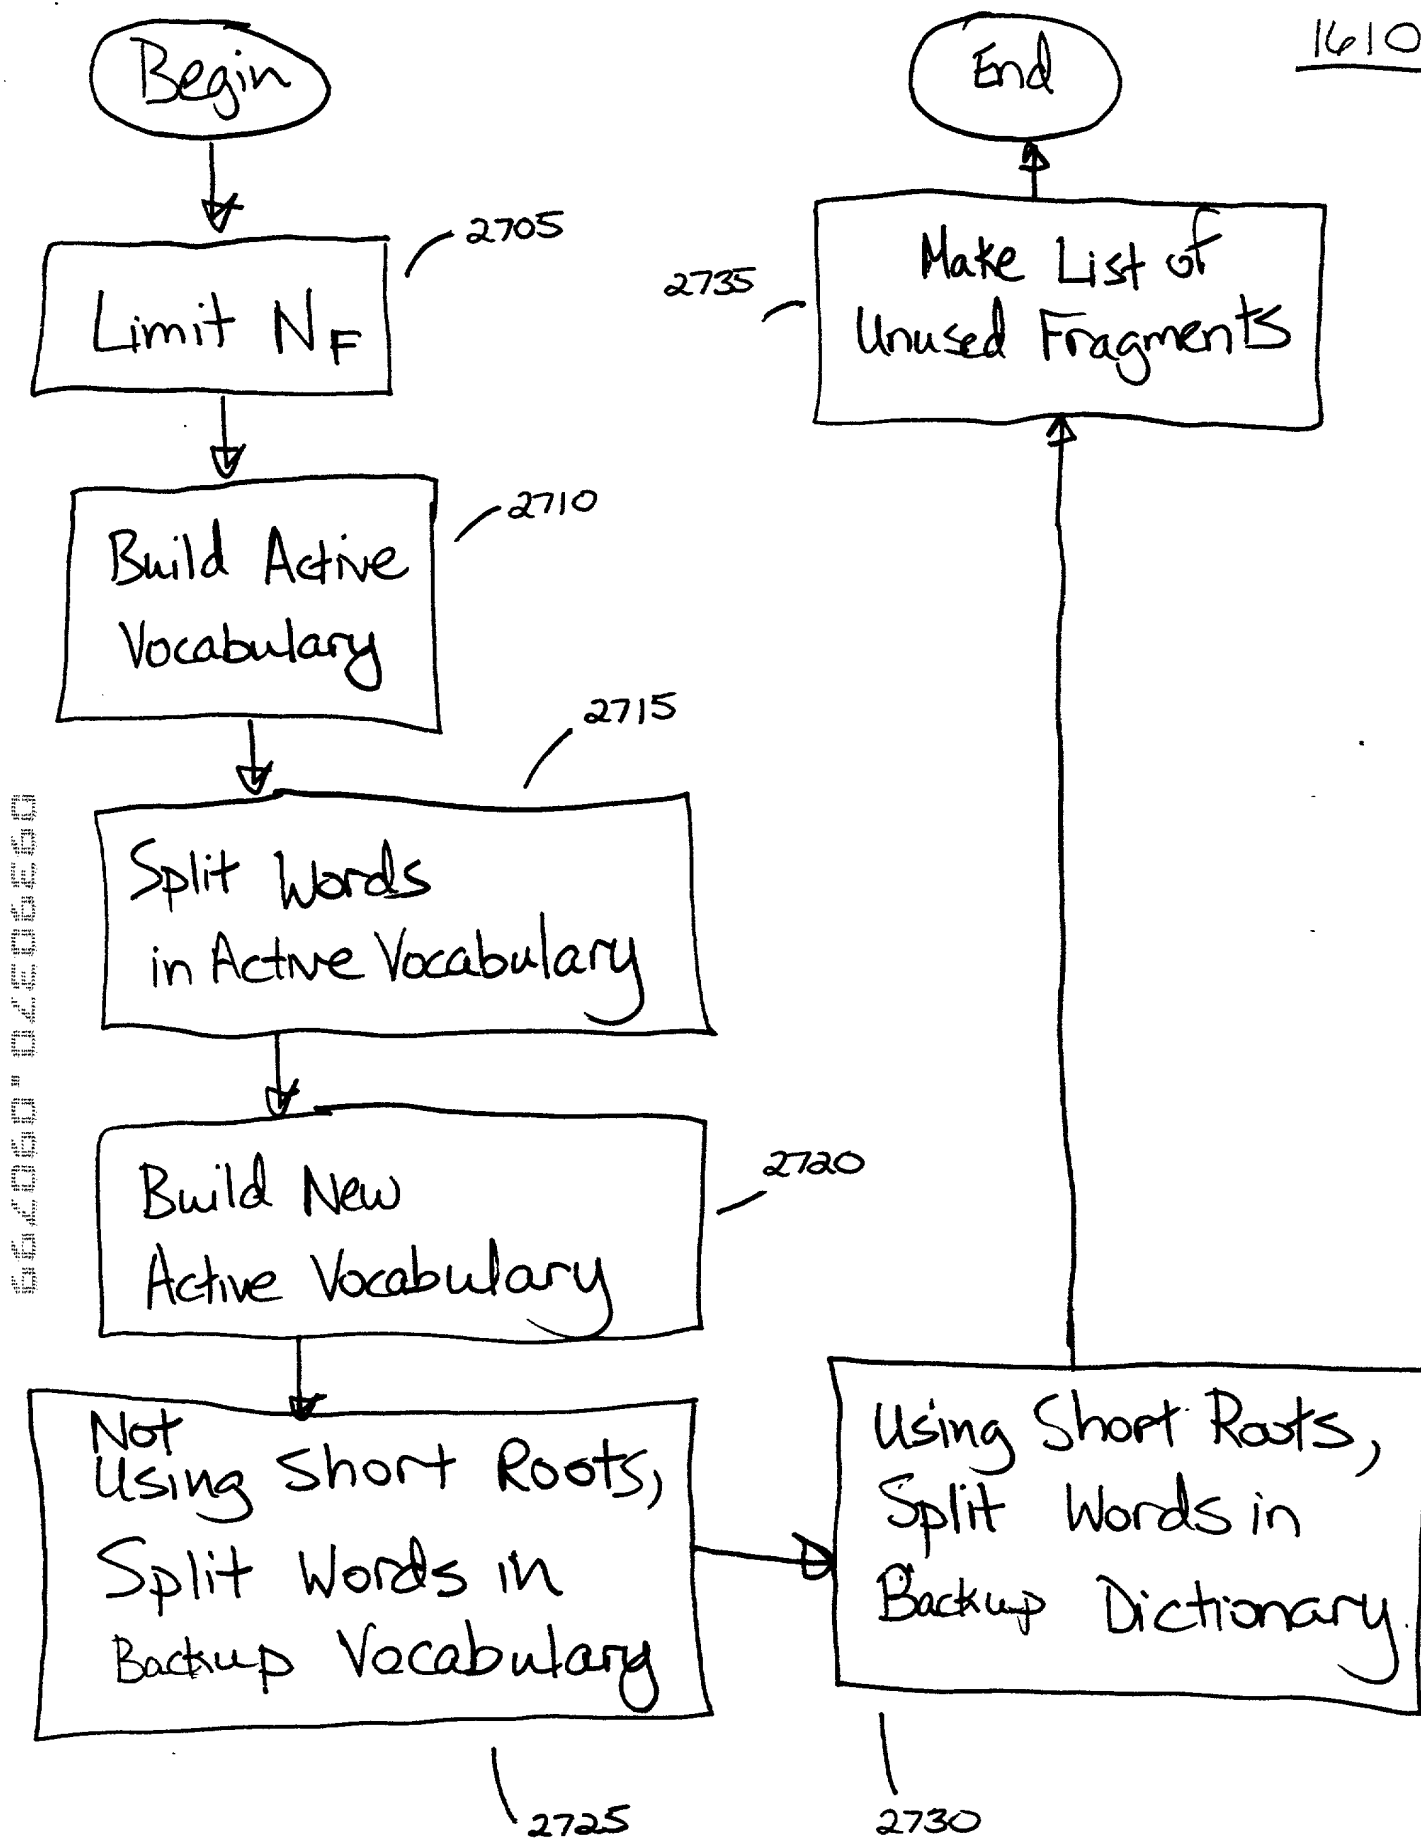 Begin
2705
Limit N_F
2710
Build Active
Vocabulary
2715
Split Words
in Active Vocabulary
2720
Build New
Active Vocabulary
Not
Using Short Roots,
Split Words in
Backup Vocabulary
2725
Using Short Roots,
Split Words in
Backup Dictionary
2730
2735
Make List of
Unused Fragments
End
1610